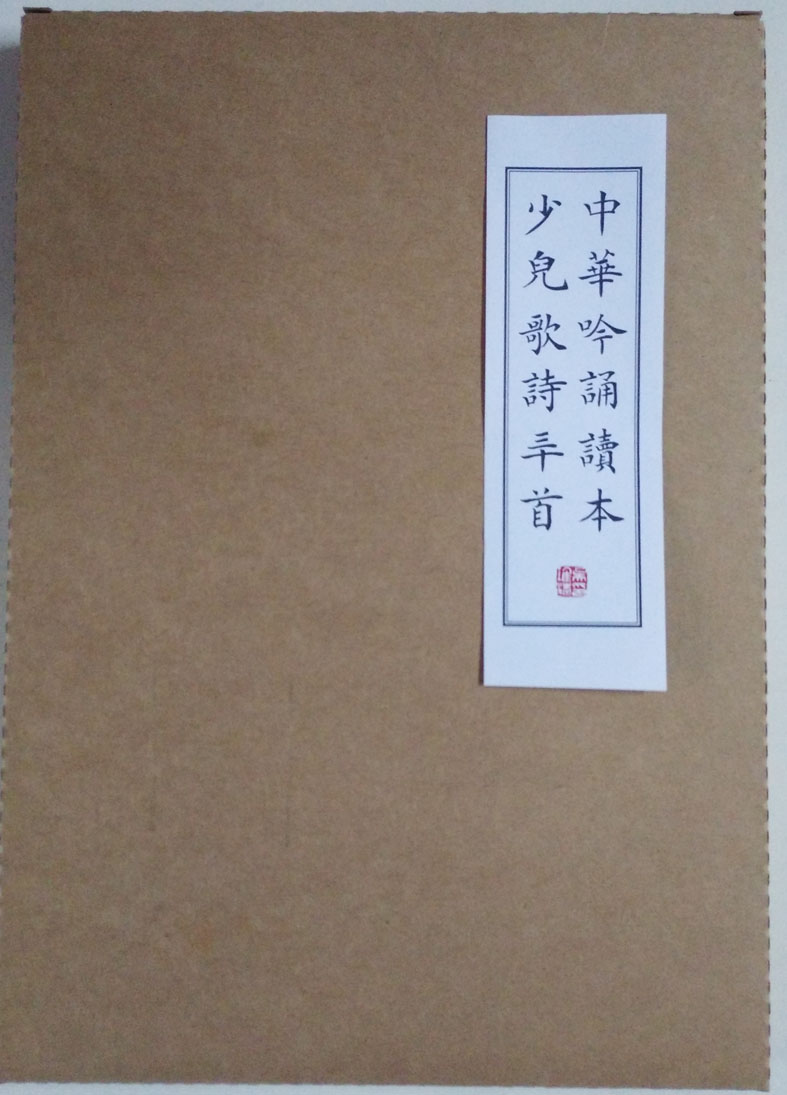 中華吟誦讀本
少兒歌詩三十首